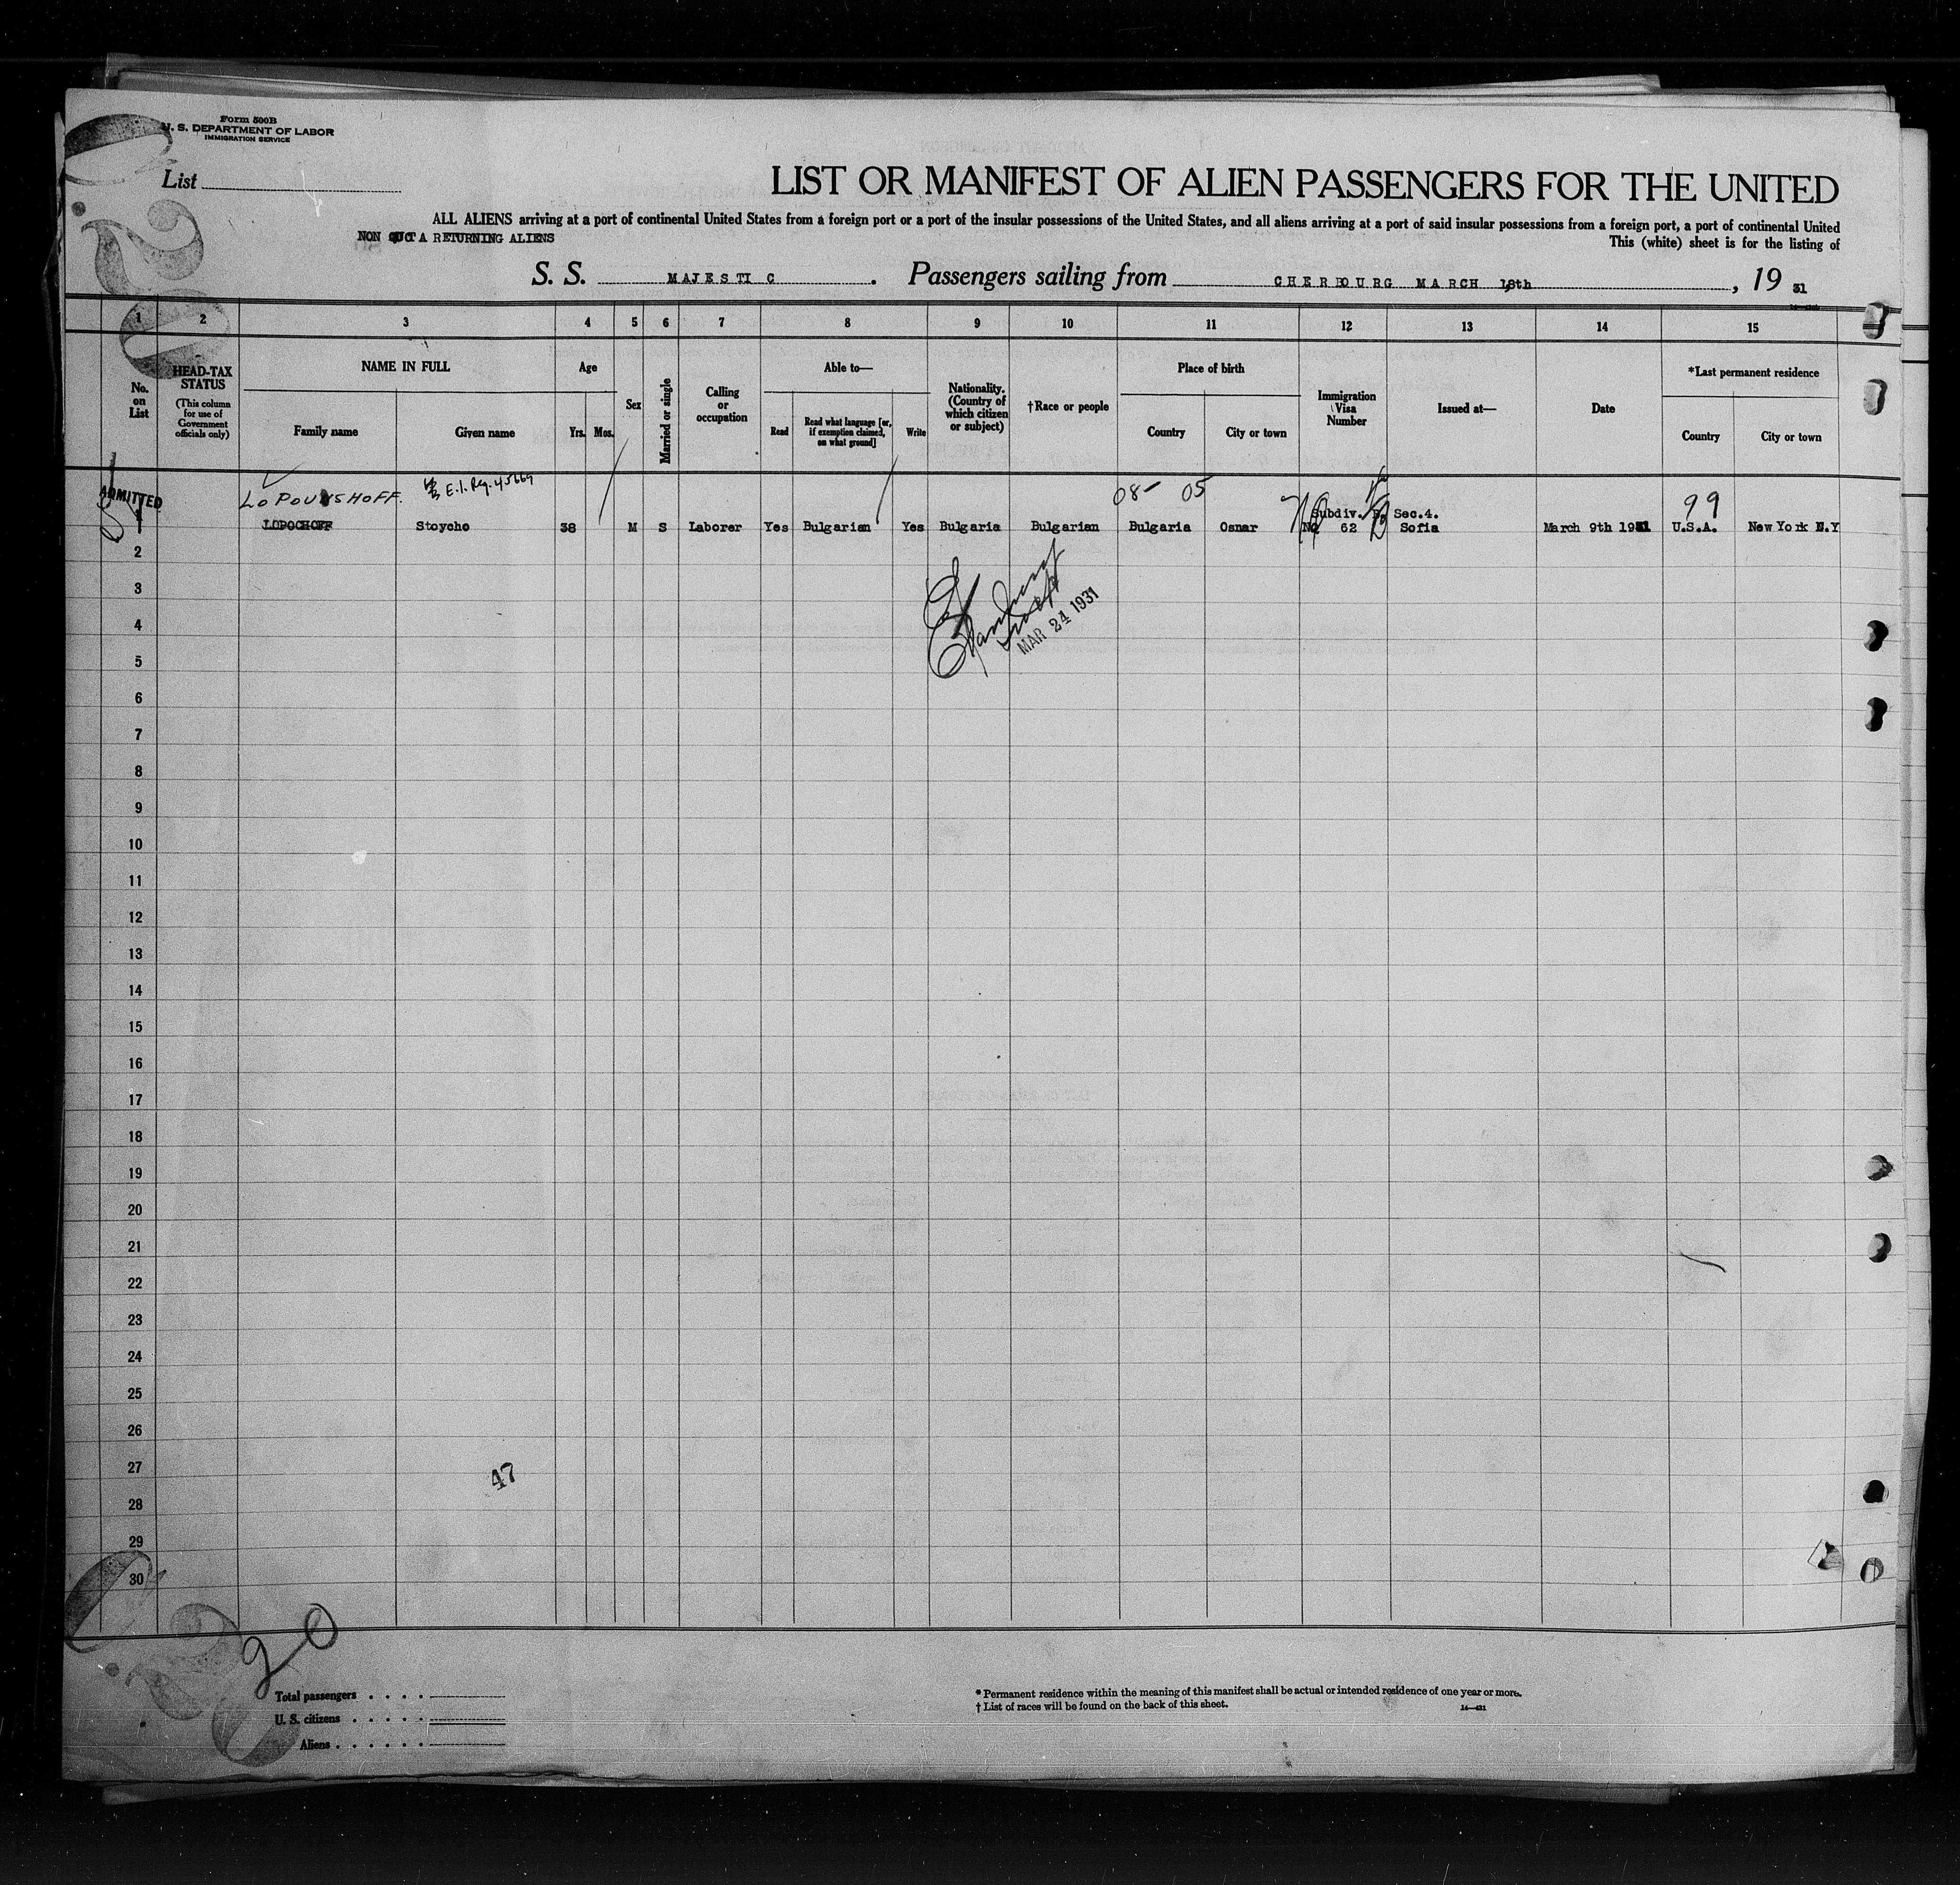 Form 500B
U. S. DEPARTMENT OF LABOR
IMMIGRATION SERVICE
List
LIST OR MANIFEST OF ALIEN PASSENGERS FOR THE UNITED
ALL ALIENS arriving at a port of continental United States from a foreign port or a port of the insular possessions of the United States, and all aliens arriving at a port of said insular possessions from a foreign port, a port of continental United
NON QUOTA RETURNING ALIENS
This (white) sheet is for the listing of
S. S. MAJESTIC. Passengers sailing from CHERBOURG MARCH 18th, 19 31
1 2 3 4 5 6 7 8 9 10 11 12 13 14 15
No. on List
HEAD-TAX STATUS
(This column for use of Government officials only)
NAME IN FULL
Family name
Given name
Age
Yrs. Mos.
Sex
Married or single
Calling or occupation
Able to—
Read
Read what language [or, if exemption claimed, on what ground]
Write
Nationality. (Country of which citizen or subject)
†Race or people
Place of birth
Country
City or town
Immigration Visa Number
Issued at—
Date
*Last permanent residence
Country
City or town
ADMITTED
LOPOUNSHOFF. E.I. Reg. 45669
08- 05
Subdiv. B. Sec.4.
99
1 LOPOCHOFF Stoycho 38 M S Laborer Yes Bulgarian Yes Bulgaria Bulgarian Bulgaria Osnar No 62 Sofia March 9th 1931 U.S.A. New York N.Y
2
3
MAR 24 1931
4
5
6
7
8
9
10
11
12
13
14
15
16
17
18
19
20
21
22
23
24
25
26
27
47
28
29
30
20
Total passengers
U. S. citizens
Aliens
* Permanent residence within the meaning of this manifest shall be actual or intended residence of one year or more.
† List of races will be found on the back of this sheet.
14—431